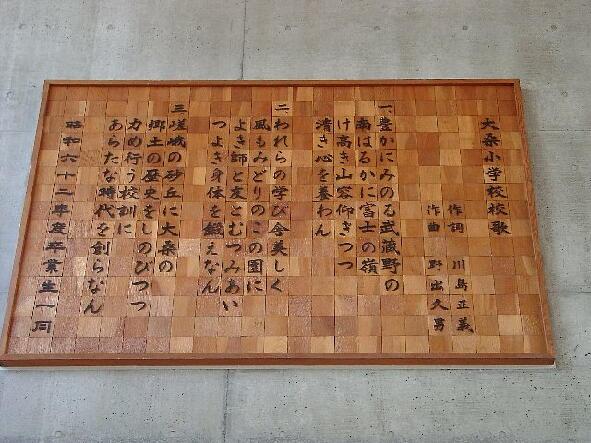 大桑小学校校歌
作詞 川島正義
作曲 野出久男
一、豊かにみのる武蔵野の
南はるかに富士の嶺
け高き山容仰ぎつつ
清き心を養わん
二、われらの学び舎美しく
風もみどりのこの園に
よき師と友とむつみあい
つよき身体を鍛えなん
三、嵯峨の砂丘に大桑の
郷土の歴史をしのびつつ
力め行う校訓に
あらたな時代を創らなん
昭和六十二年度卒業生一同